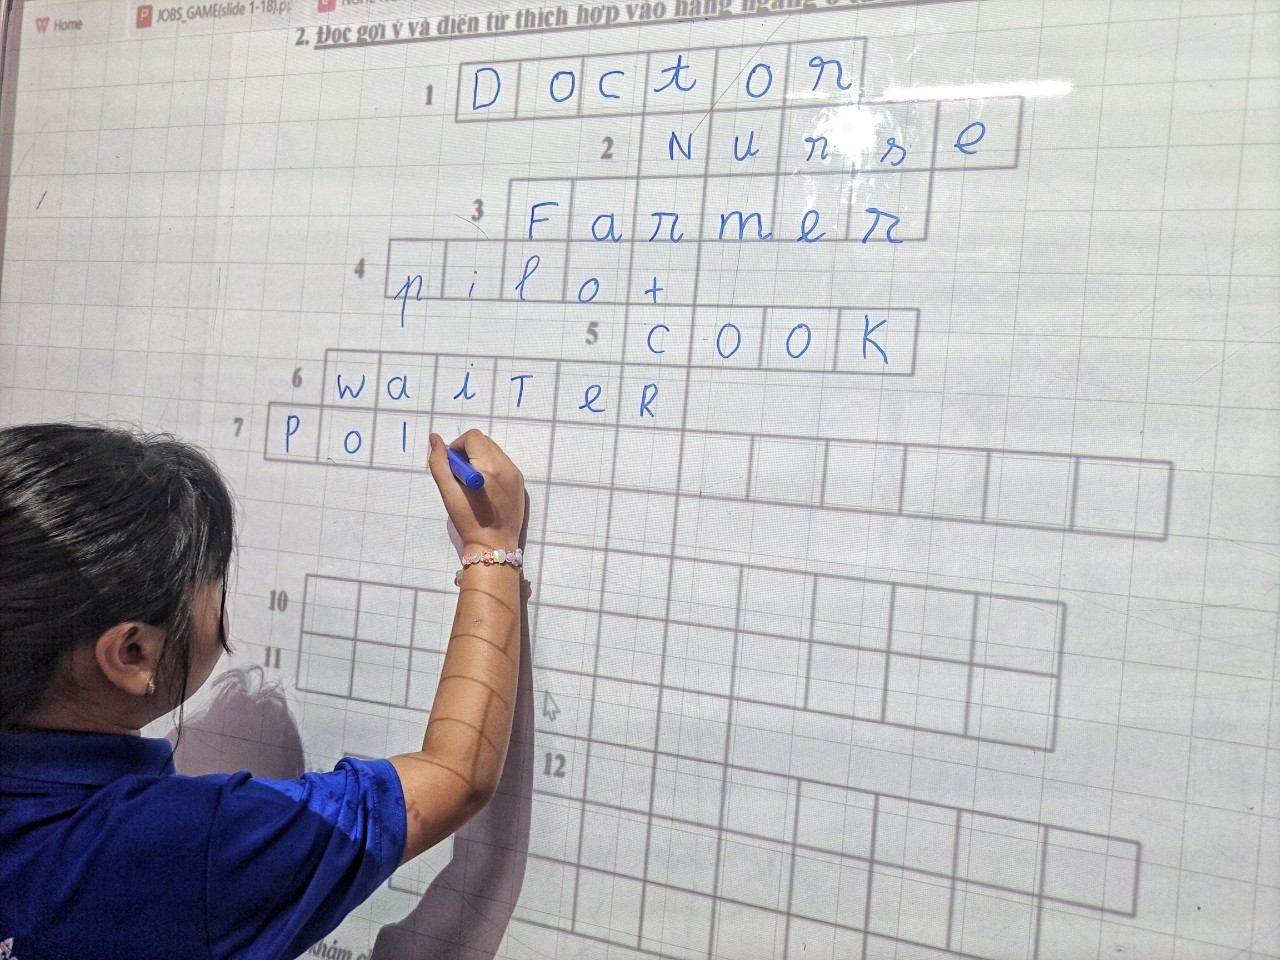 Home
JOBS_GAME(slide 1-18).p
2. Đọc gợi ý và điền từ thích hợp vào hàng ngang
1 Doctor
2 Nurse
3 Farmer
4 pilot
5 COOK
6 waiTeR
7 Pol
10
11
12
khám